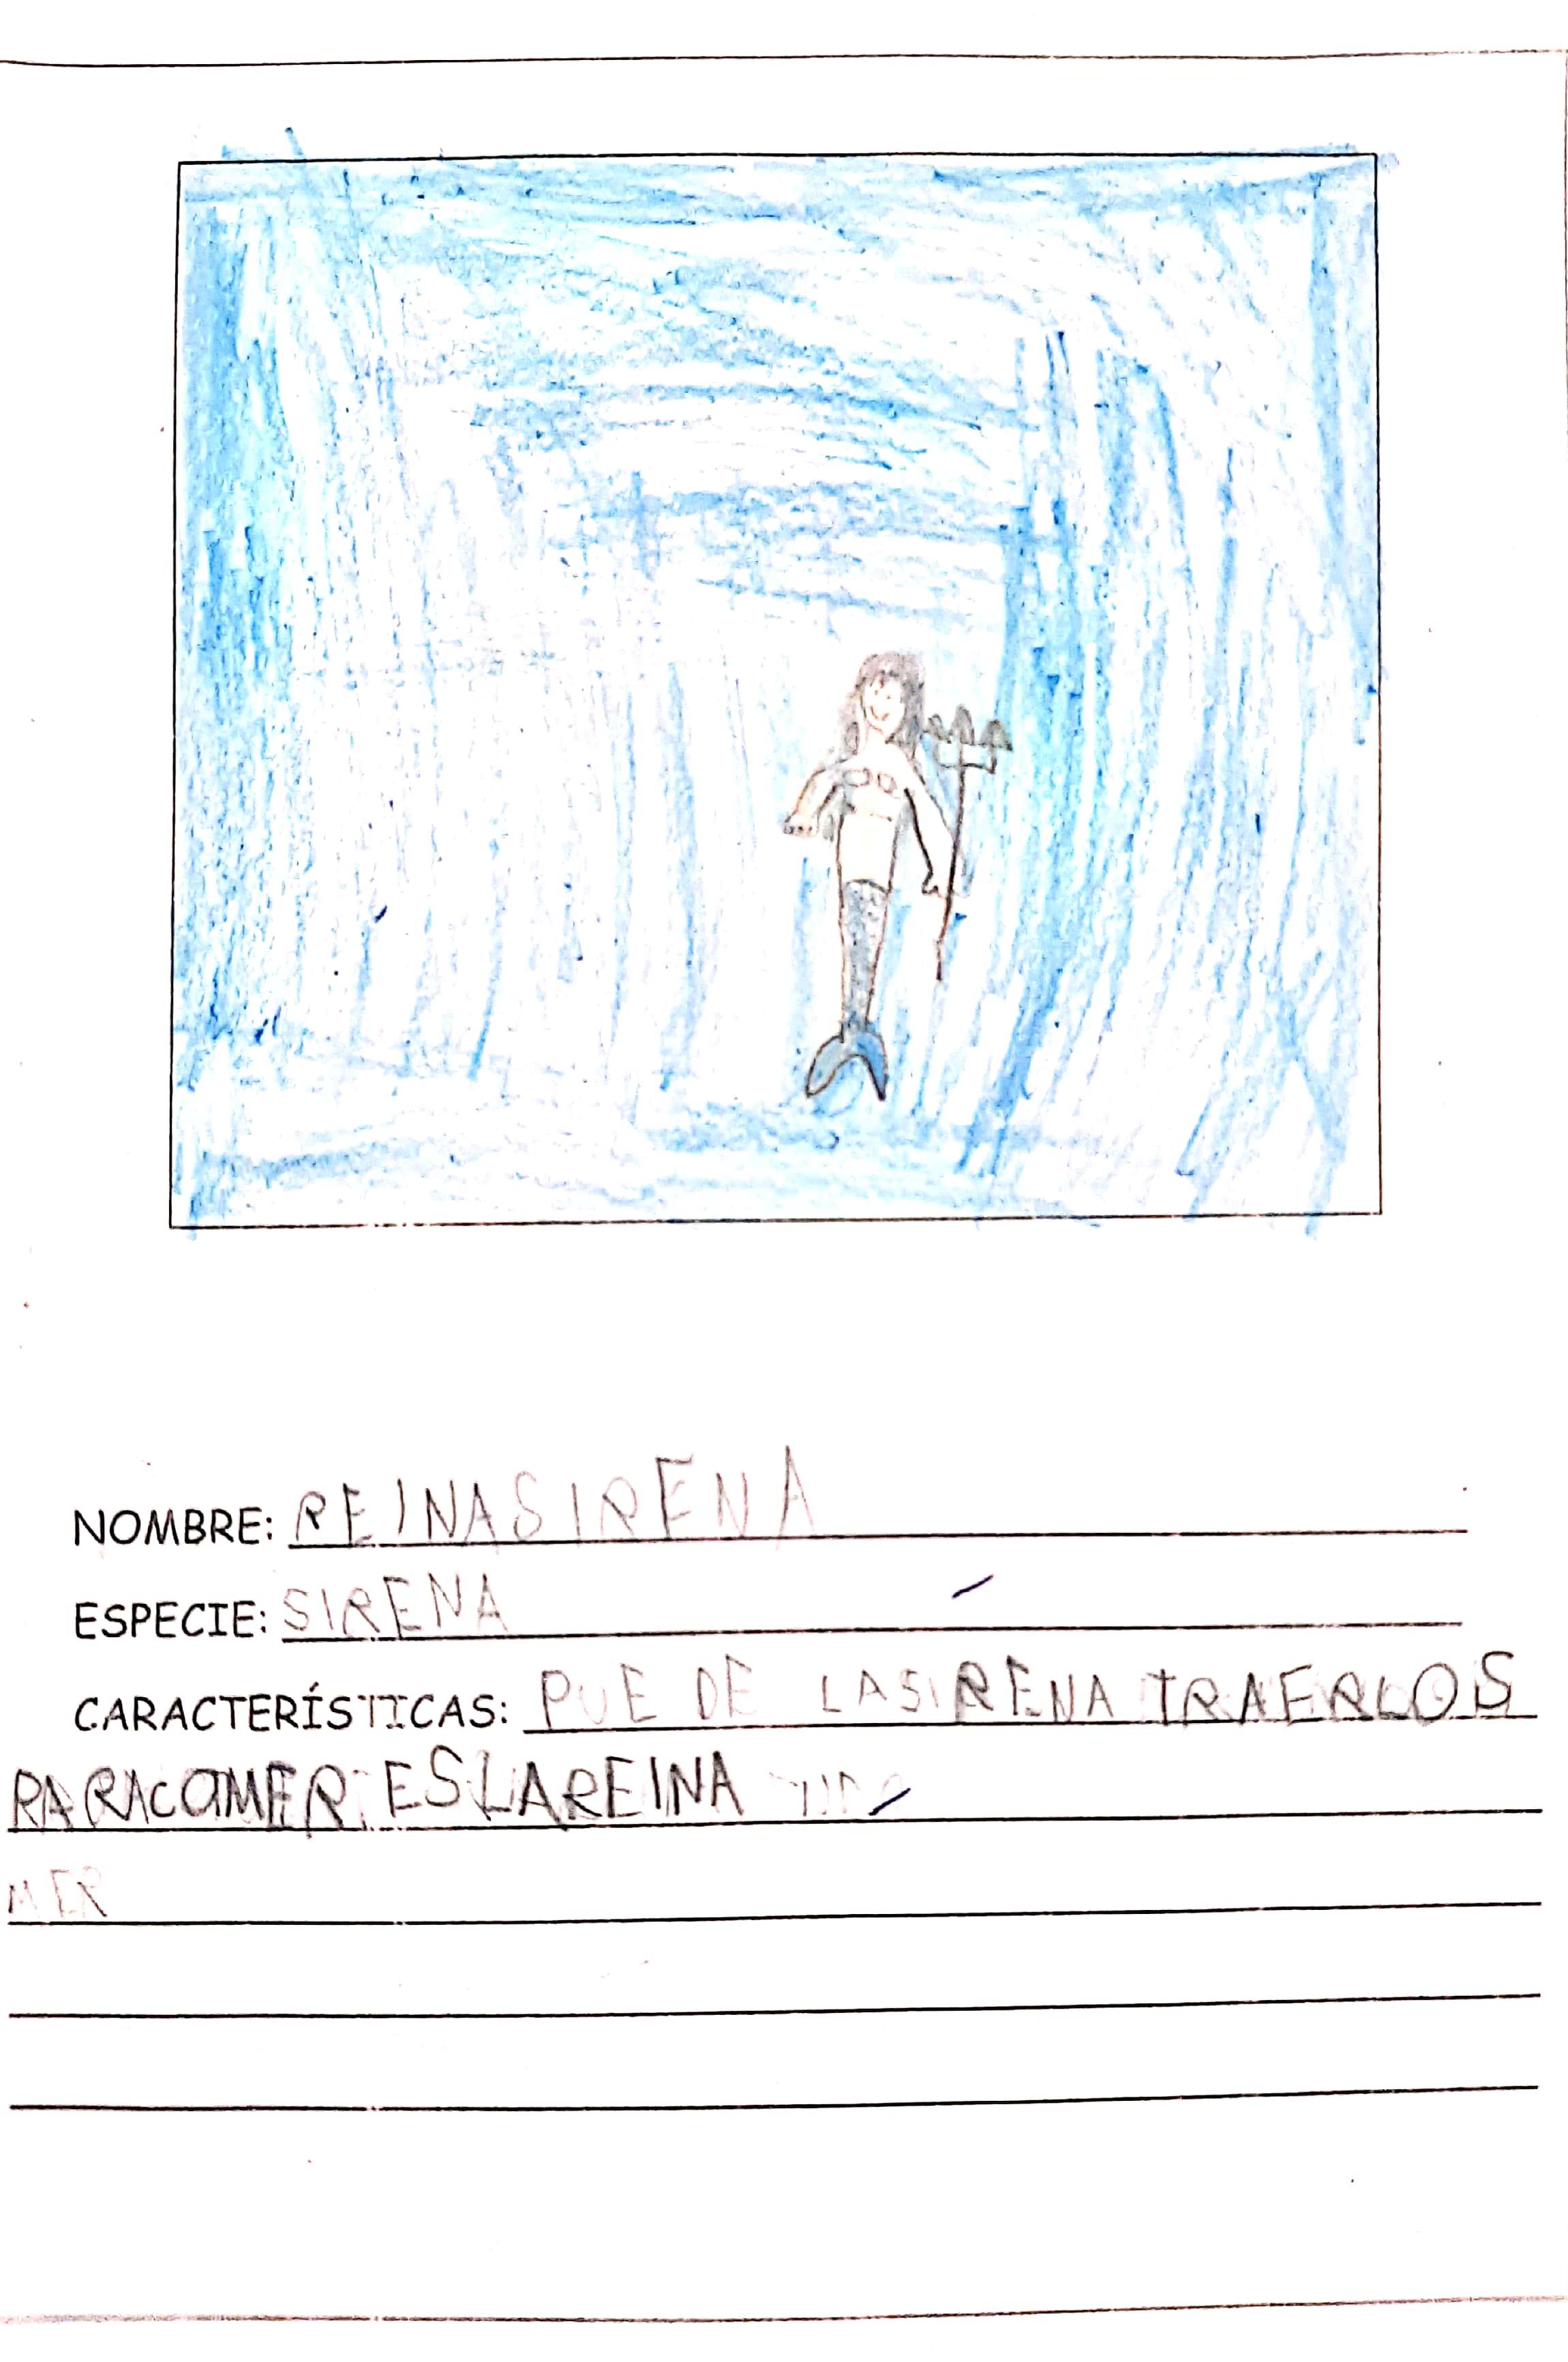 NOMBRE: REINASIRENA
ESPECIE: SIRENA
CARACTERÍSTICAS: PUE DE LASIRENA TRAERLOS
PARACOMER ESLAREINA
MER